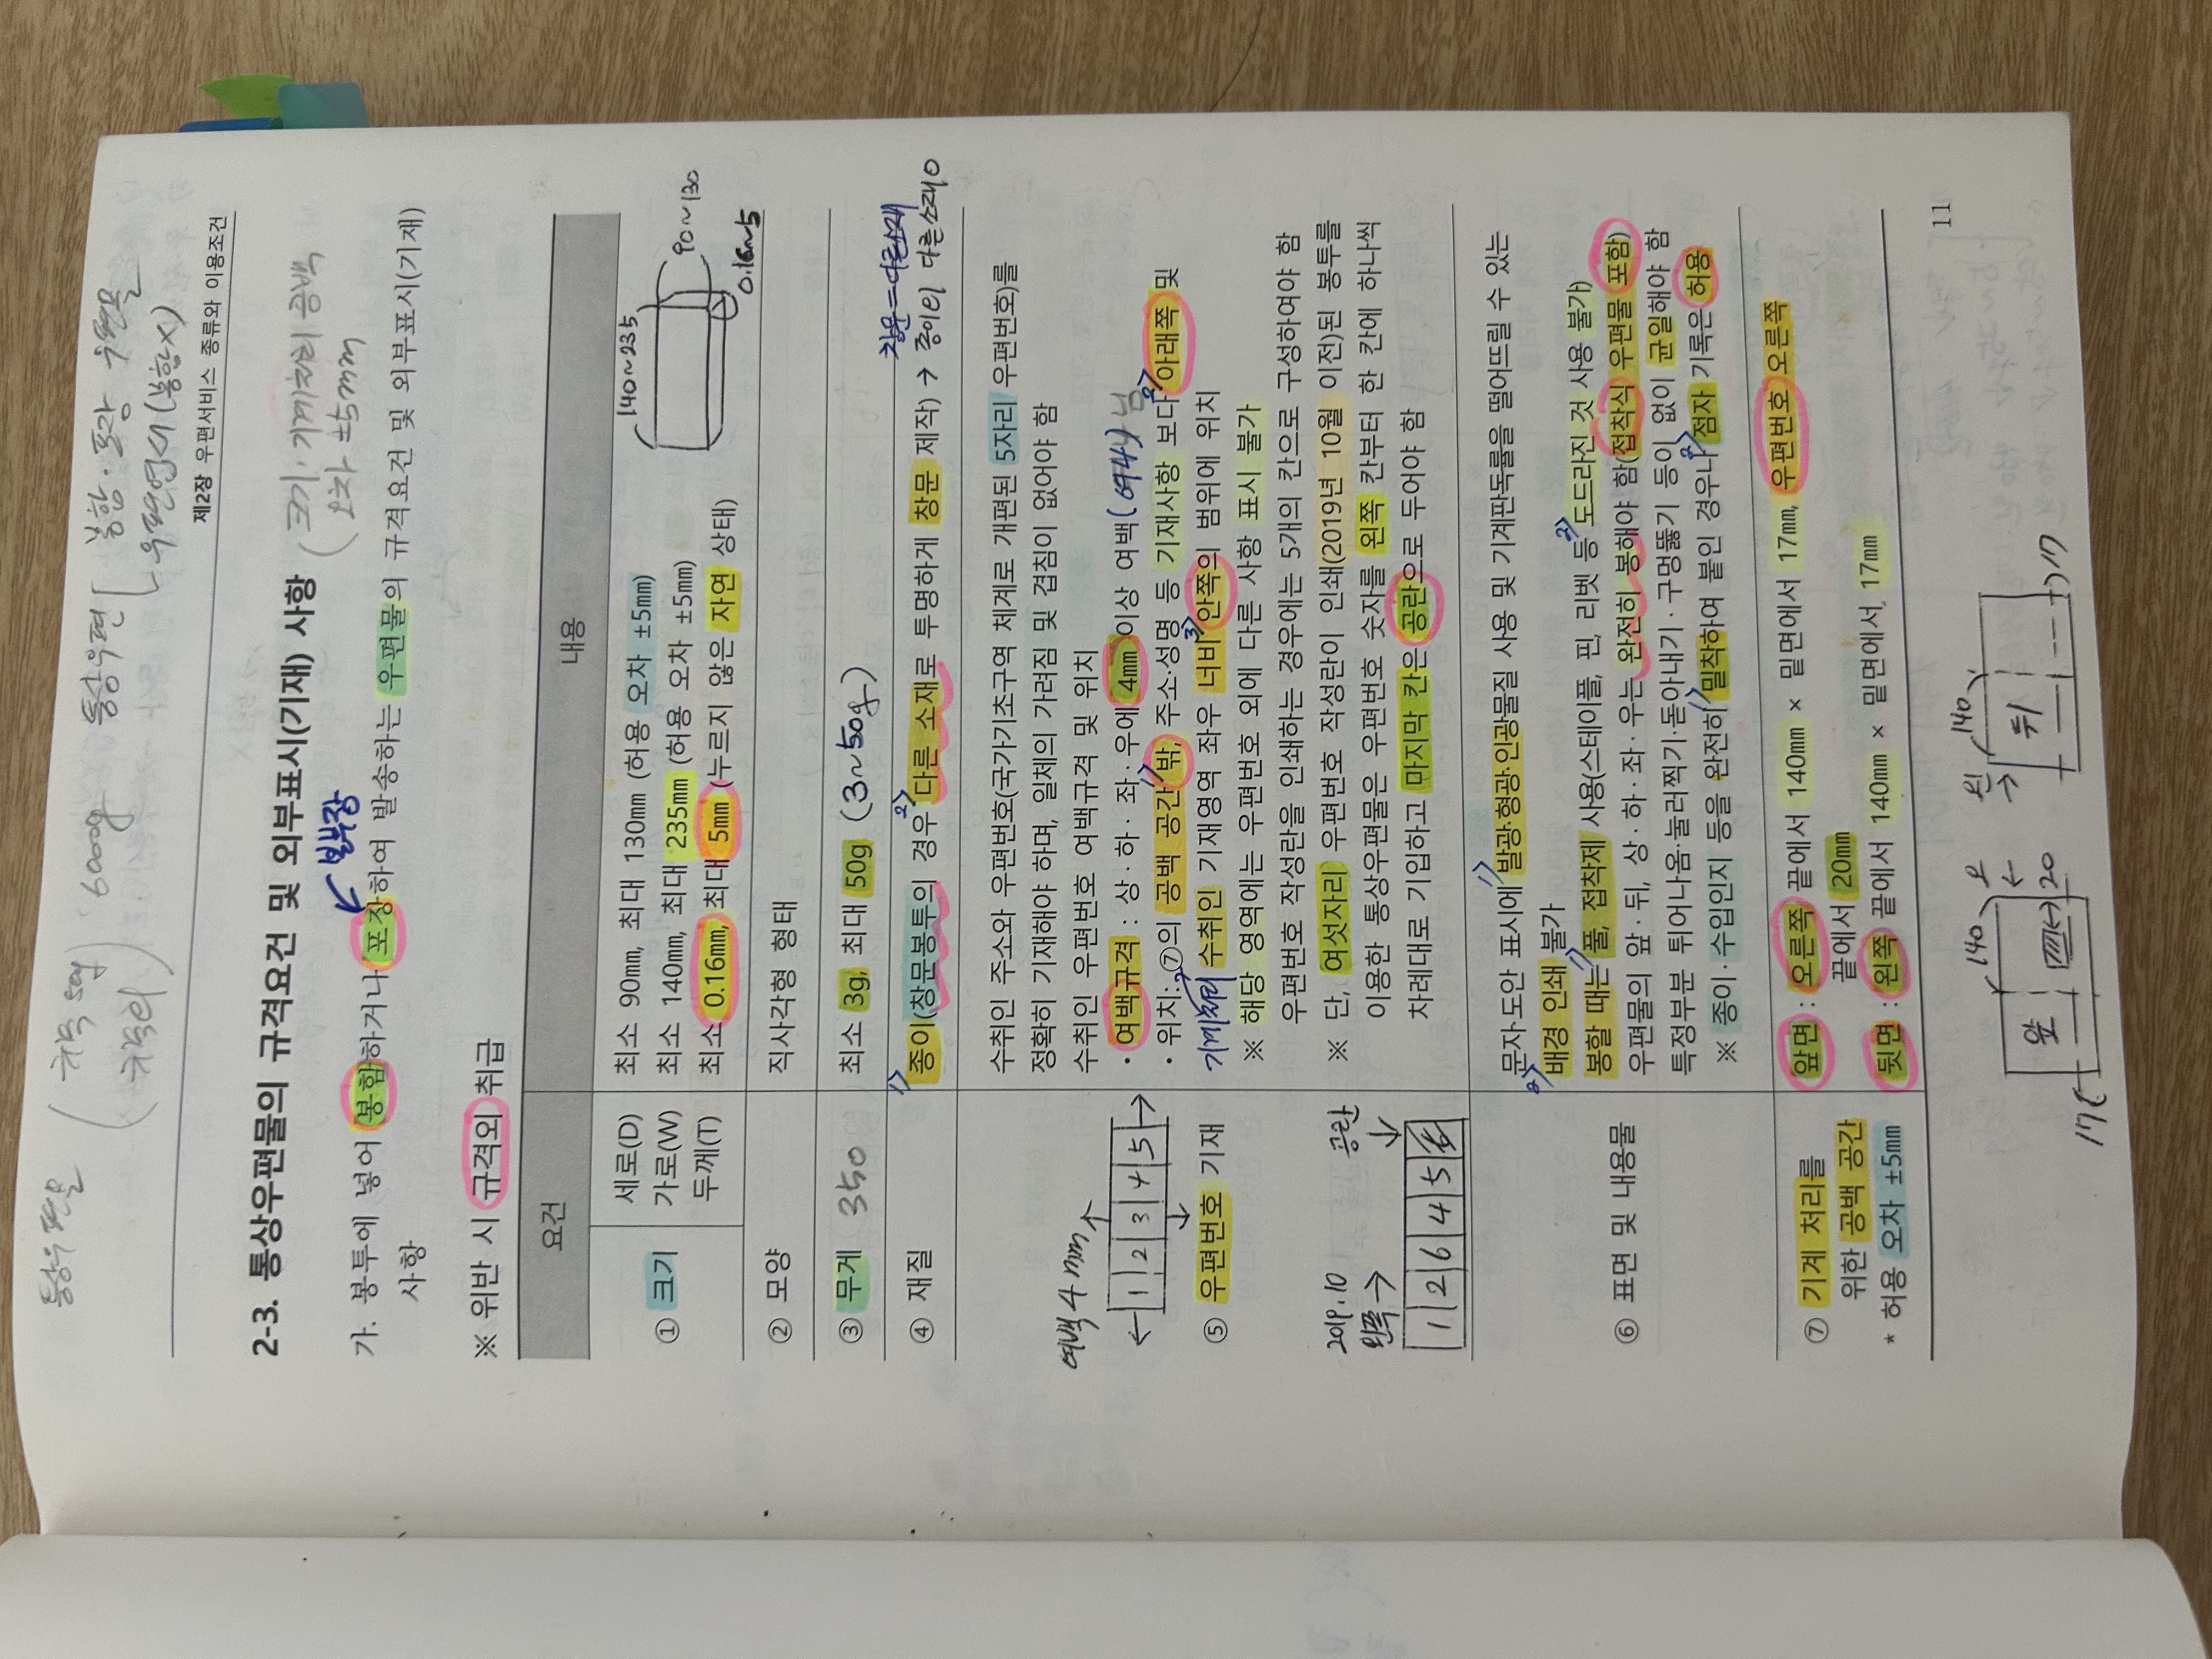 통상우편물
규격 50g
규격외
6000g 통상우편
봉함·포장 우편물
우편엽서(봉함X)
제2장 우편서비스 종류와 이용조건
2-3. 통상우편물의 규격요건 및 외부표시(기재) 사항
크기·기계처리 공백
오차 ±5mm
가. 봉투에 넣어 봉함하거나 포장하여 발송하는 우편물의 규격요건 및 외부표시(기재)
사항
※ 위반 시 규격외 취급
요건 내용
① 크기
세로(D) 최소 90mm, 최대 130mm (허용 오차 ±5mm)
가로(W) 최소 140mm, 최대 235mm (허용 오차 ±5mm)
두께(T) 최소 0.16mm, 최대 5mm (누르지 않은 자연 상태)
140~235
90~130
0.16~5
② 모양 직사각형 형태
③ 무게 350 최소 3g, 최대 50g (3~50g)
창문=다른소재
④ 재질 1) 종이(창문봉투의 경우 2) 다른 소재로 투명하게 창문 제작) → 종이외 다른소재 0
수취인 주소와 우편번호(국가기초구역 체계로 개편된 5자리 우편번호)를
정확히 기재해야 하며, 일체의 가려짐 및 겹침이 없어야 함
수취인 우편번호 여백규격 및 위치
여백 4mm
1 2 3 4 5
⑤ 우편번호 기재
· 여백규격 : 상·하·좌·우에 4mm 이상 여백(여4)
· 위치: ⑦의 공백 공간 1) 밖, 주소·성명 등 기재사항 보다 2) 아래쪽 및
기계처리 수취인 기재영역 좌우 너비 3) 안쪽의 범위에 위치
※ 해당 영역에는 우편번호 외에 다른 사항 표시 불가
우편번호 작성란을 인쇄하는 경우에는 5개의 칸으로 구성하여야 함
2019.10
왼쪽 →
공란
1 2 6 4 5
※ 단, 여섯자리 우편번호 작성란이 인쇄(2019년 10월 이전)된 봉투를
이용한 통상우편물은 우편번호 숫자를 왼쪽 칸부터 한 칸에 하나씩
차례대로 기입하고 마지막 칸은 공란으로 두어야 함
⑥ 표면 및 내용물
문자·도안 표시에 1) 발광·형광·인광물질 사용 및 기계판독률을 떨어뜨릴 수 있는
2) 배경 인쇄 불가
봉할 때는 1) 풀, 접착제 사용(스테이플, 핀, 리벳 등 2) 도드라진 것 사용 불가)
우편물의 앞·뒤, 상·하·좌·우는 완전히 봉해야 함(접착식 우편물 포함)
특정부분 튀어나옴·눌러찍기·돋아내기·구멍뚫기 등이 없이 균일해야 함
※ 종이·수입인지 등을 완전히 1) 밀착하여 붙인 경우나 2) 점자 기록은 허용
⑦ 기계 처리를
위한 공백 공간
* 허용 오차 ±5mm
앞면 : 오른쪽 끝에서 140mm × 밑면에서 17mm, 우편번호 오른쪽
끝에서 20mm
뒷면 : 왼쪽 끝에서 140mm × 밑면에서 17mm
앞
140
오
20
17
왼
140
뒤
17
11